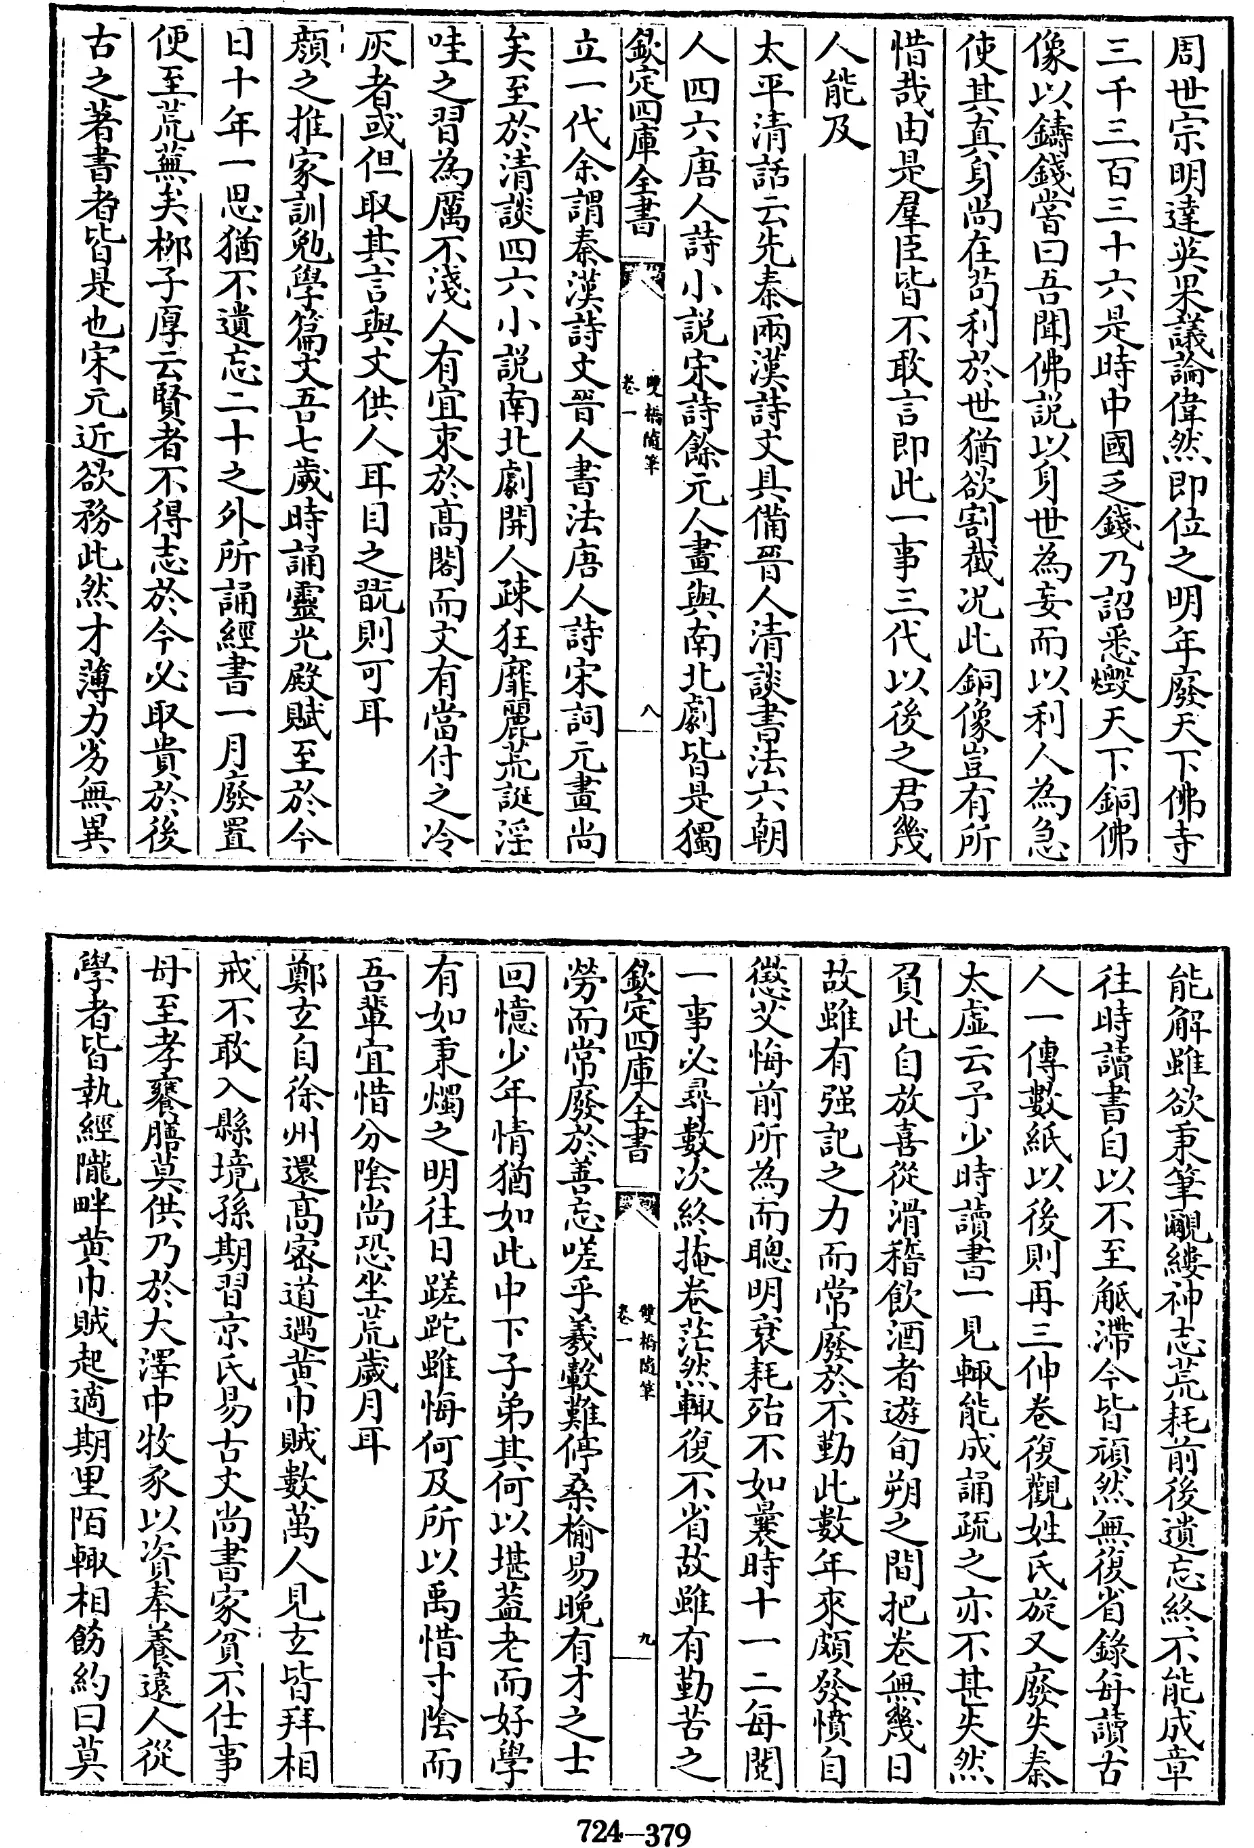 周世宗明達英果議論偉然即位之明年廢天下佛寺
三千三百三十六是時中國乏錢乃詔悉燬天下銅佛
像以鑄錢嘗曰吾聞佛説以身世為妄而以利人為急
使其真身尚在茍利於世猶欲割截况此銅像豈有所
惜哉由是羣臣皆不敢言即此一事三代以後之君幾
人能及
太平清話云先秦兩漢詩文具備晉人清談書法六朝
人四六唐人詩小説宋詩餘元人畫與南北劇皆是獨
欽定四庫全書
雙橋隨筆
卷一
八
立一代余謂秦漢詩文晉人書法唐人詩宋詞元畫尚
矣至於清談四六小説南北劇開人疎狂靡麗荒誕淫
哇之習為厲不淺人有宜束於高閣而文有當付之冷
灰者或但取其言與文供人耳目之翫則可耳
顔之推家訓勉學篇文吾七歲時誦靈光殿賦至於今
日十年一思猶不遺忘二十之外所誦經書一月廢置
便至荒蕪矣栁子厚云賢者不得志於今必取貴於後
古之著書者皆是也宋元近欲務此然才薄力劣無異
能解雖欲秉筆覼縷神志荒耗前後遺忘終不能成章
往時讀書自以不至觝滯今皆頑然無復省錄每讀古
人一傳數紙以後則再三伸卷復觀姓氏旋又廢失秦
太虛云予少時讀書一見輙能成誦疏之亦不甚失然
負此自放喜從滑稽飲酒者遊旬朔之間把卷無幾日
故雖有强記之力而常廢於不勤此數年來頗發憤自
懲艾悔前所為而聰明衰耗殆不如曩時十一二每閱
一事必尋數次終掩卷茫然輙復不省故雖有勤苦之
欽定四庫全書
雙橋隨筆
卷一
九
勞而常廢於善忘嗟乎羲馭難停桑榆易晚有才之士
回憶少年情猶如此中下子弟其何以堪葢老而好學
有如秉燭之明往日蹉跎雖悔何及所以禹惜寸陰而
吾輩宜惜分陰尚恐坐荒歲月耳
鄭玄自徐州還髙密道遇黄巾賊數萬人見玄皆拜相
戒不敢入縣境孫期習京氏易古文尚書家貧不仕事
母至孝饔膳莫供乃於大澤中牧豕以資奉養逺人從
學者皆執經隴畔黄巾賊起適期里陌輙相飭約曰莫
724—379